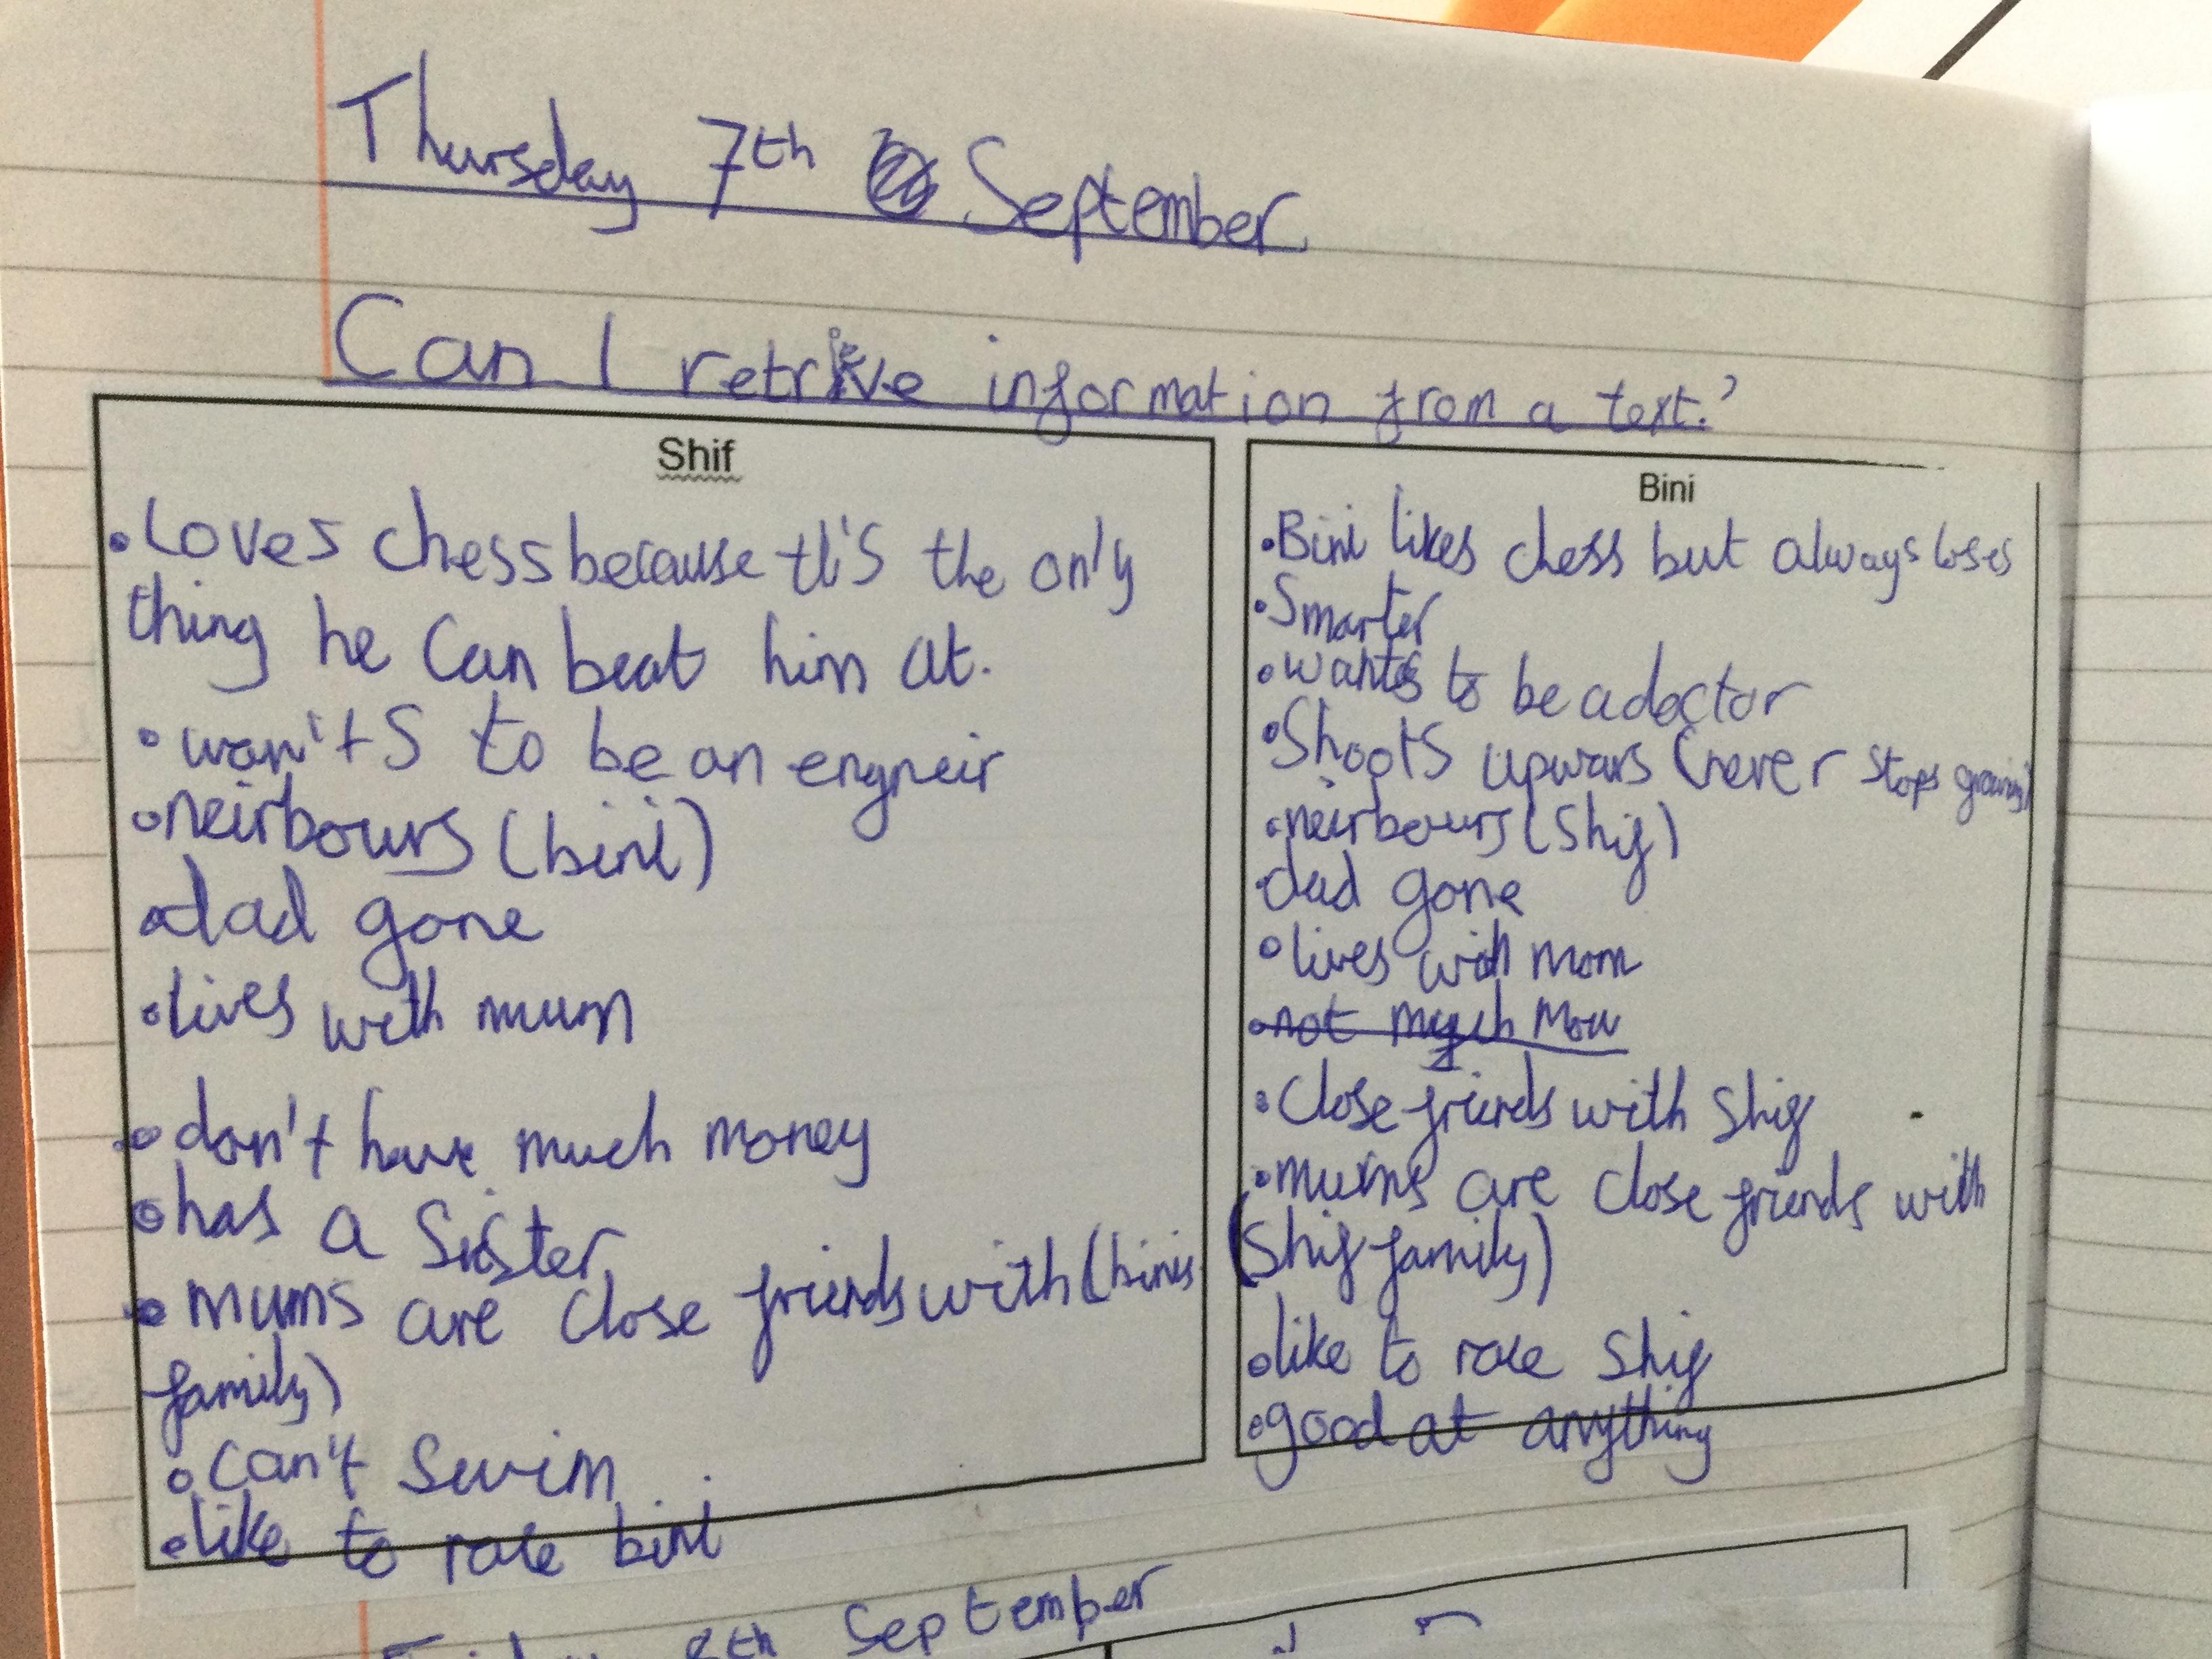 Thursday 7th September
Can I retrieve information from a text?
Shif
• Loves chess because it's the only
thing he can beat him at.
• wan't s to be an engneir
• neirbours (bini)
• dad gone
• lives with mum
• don't have much money
• has a sister
• mums are close friends with (binis
family)
• can't swim
• like to race bini
Bini
• Bini likes chess but always loses
• Smarter
• wants to be a doctor
• Shoots upwars (never stops growing)
• neirbours (Shif)
• dad gone
• lives with mom
• not much Mon
• Close friends with Shif
• mums are close friends with
(Shif family)
• like to race Shif
• good at anything
8th September